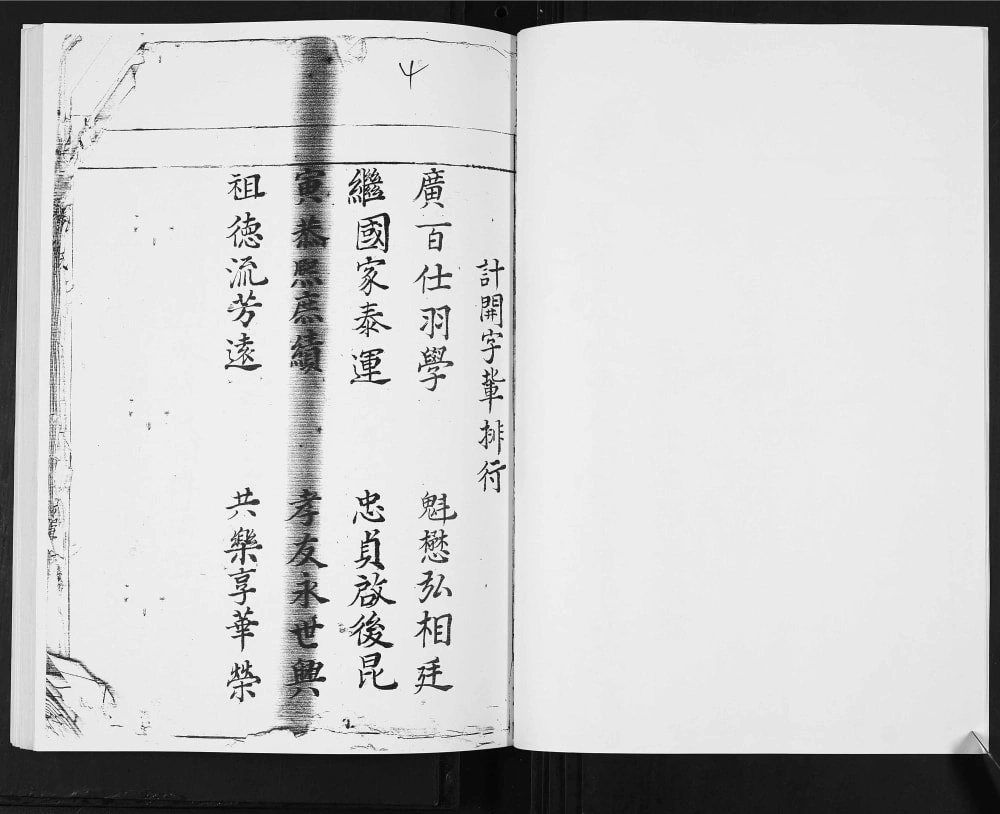 計開字輩排行
廣百仕羽學　魁懋弘相廷
繼國家泰運　忠貞啟後昆
寅恭熙庶績　孝友永世興
祖德流芳遠　共樂享華榮